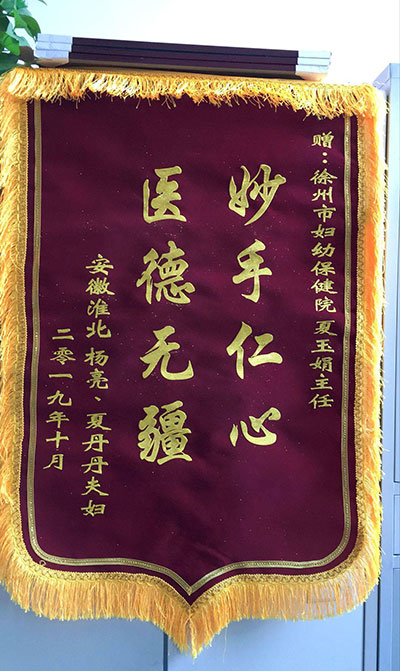 赠：徐州市妇幼保健院 夏玉娟主任
妙手仁心
医德无疆
安徽淮北 杨亮、夏丹丹夫妇
二零一九年十月